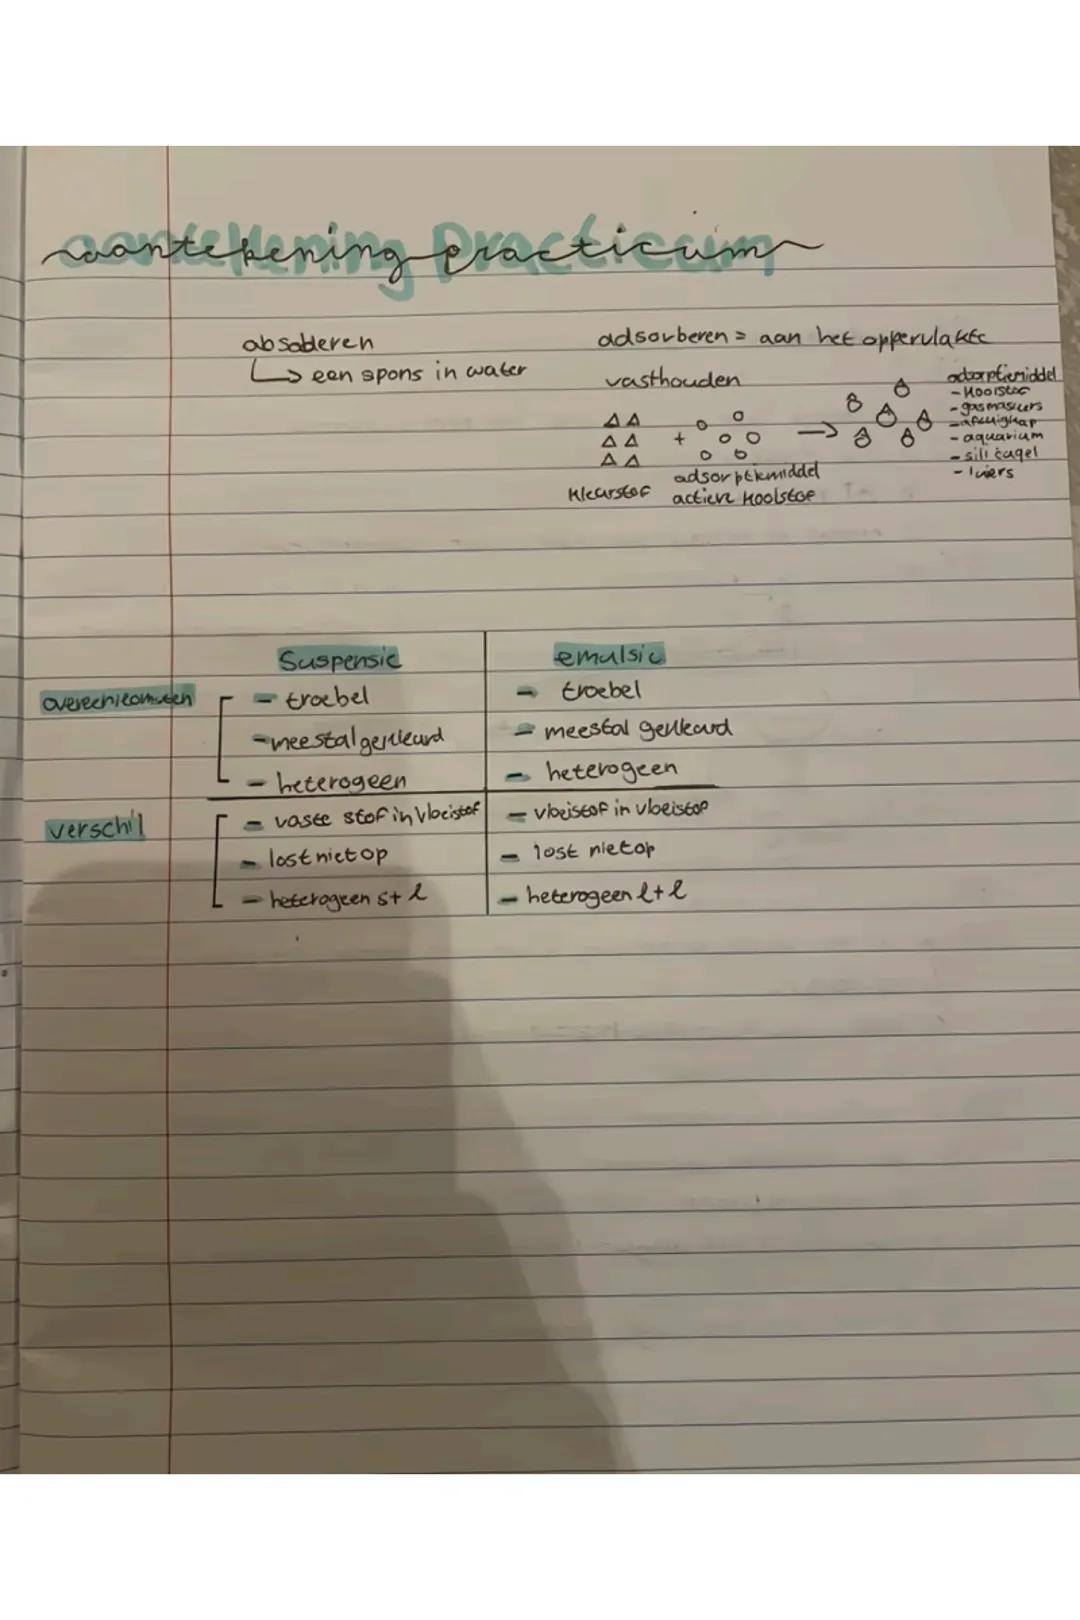 aantekening practicum
absoberen
een spons in water
adsorberen = aan het oppervlakte
vasthouden
+
kleurstof
adsorptiemiddel
actieve koolstof
adsorptiemiddel
- koolstof
- gasmaskers
- afzuigkap
- aquarium
- silicagel
- luiers
Suspensie
emulsie
overeenkomsten
- troebel
- meestal gekleurd
- heterogeen
- troebel
- meestal gekleurd
- heterogeen
verschil
- vaste stof in vloeistof
- lost niet op
- heterogeen s + l
- vloeistof in vloeistof
- lost niet op
- heterogeen l + l